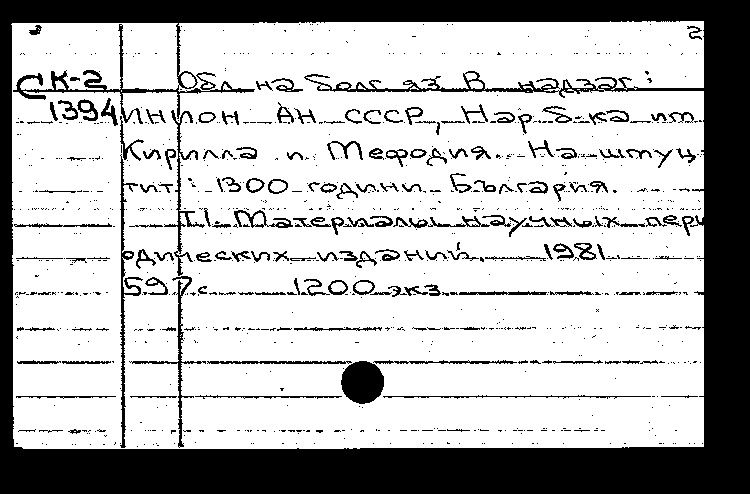 2
СК-2 Обл. на болг. яз. В надзаг.:
1394 ИНИОН АН СССР, Нар. б-ка им.
Кирилла и Мефодия. На шмуц-
тит.: 1300 години България.
Т.1. Материалы научных пери
одических изданий. 1981.
597 с. 1200 экз.